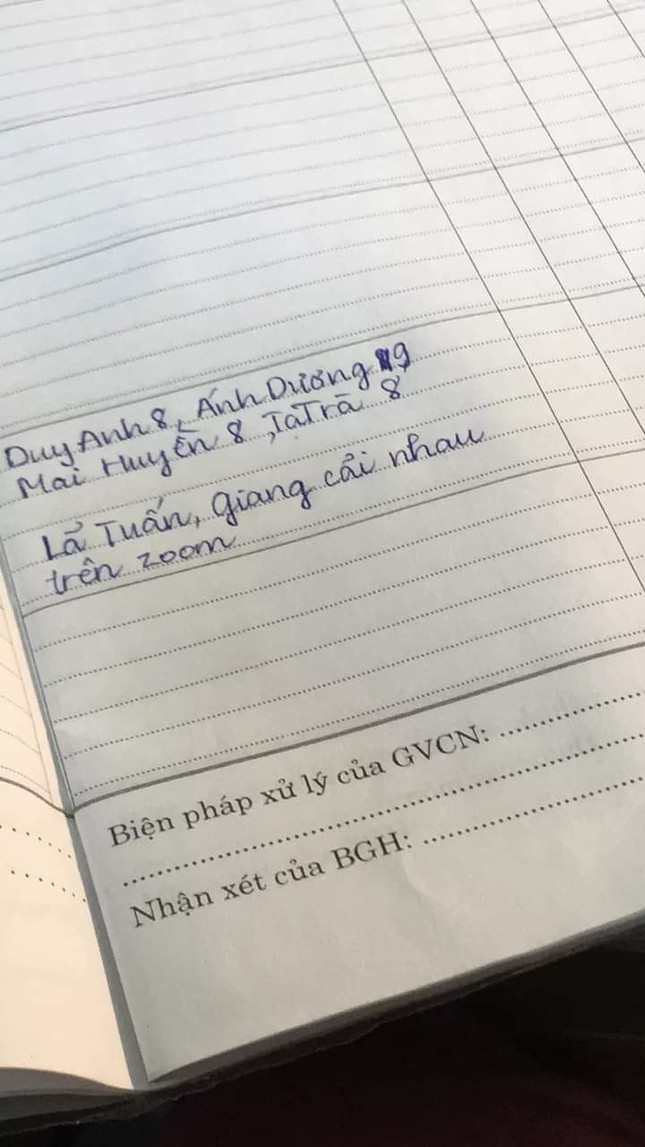 Duy Anh 8, Ánh Dương 9
Mai Huyền 8, Tạ Trà 8
Lả Tuấn, Giang cãi nhau
trên zoom
Biện pháp xử lý của GVCN:
Nhận xét của BGH: